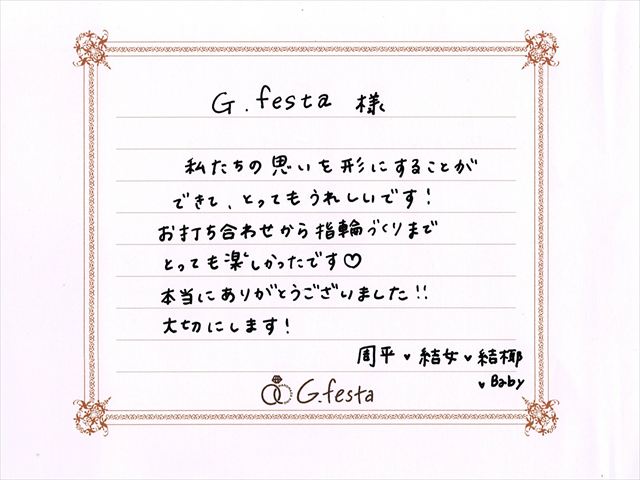 G.festa 様
私たちの思いを形にすることが
できて、とってもうれしいです！
お打ち合わせから指輪づくりまで
とっても楽しかったです♡
本当にありがとうございました!!
大切にします！
周平♥結女♥結椰
♥Baby
G.festa